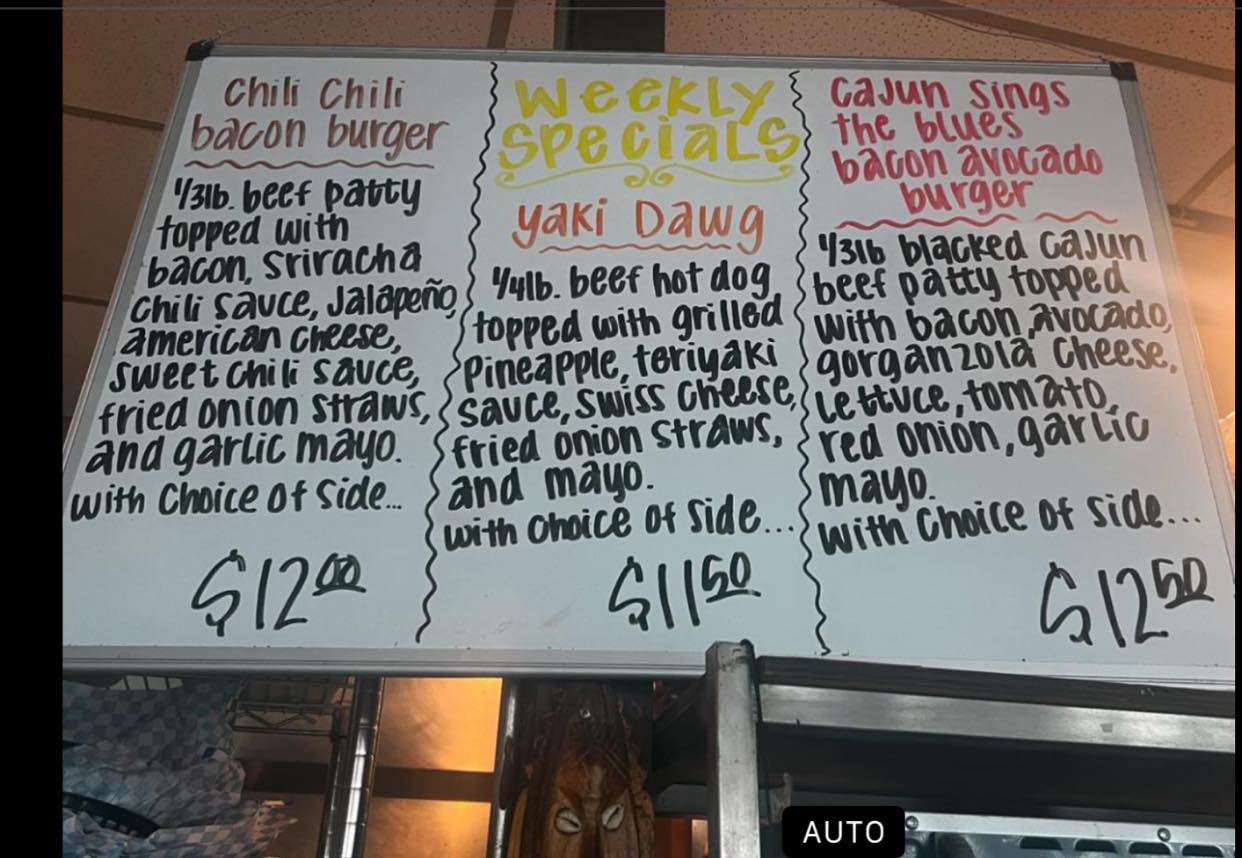 Chili Chili
bacon burger
1/3lb. beef patty
topped with
bacon, sriracha
chili sauce, Jalapeño,
american cheese,
sweet chili sauce,
fried onion straws,
and garlic mayo.
with Choice of Side...
$12.00
Weekly
Specials
Yaki Dawg
1/4lb. beef hot dog
topped with grilled
Pineapple, teriyaki
sauce, swiss cheese,
fried onion straws,
and mayo.
with choice of side...
$11.50
Cajun Sings
the blues
bacon avocado
burger
1/3lb blacked Cajun
beef patty topped
with bacon, avocado,
gorganzola Cheese,
Lettuce, tomato,
red onion, garlic
mayo.
with Choice of side...
$12.50
AUTO